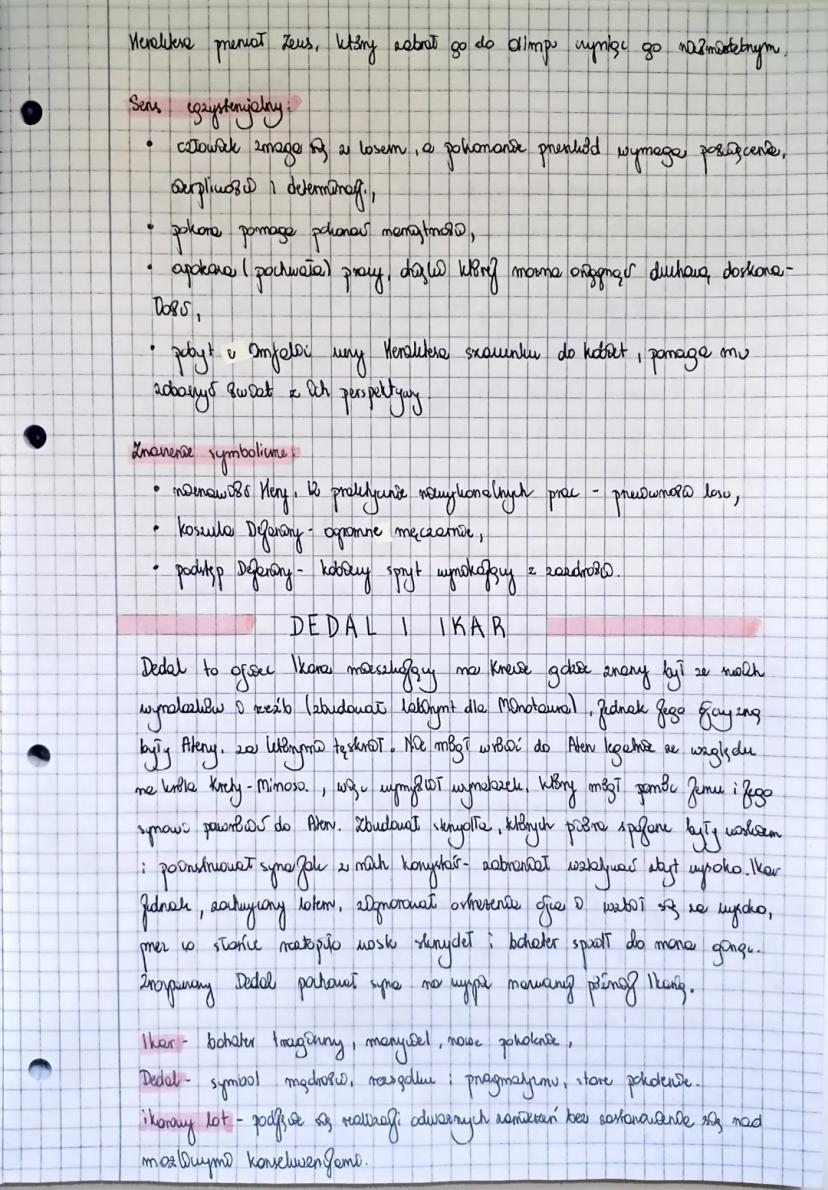 Heraklesa przeniósł Zeus, który zabrał go do Olimpu czyniąc go nieśmiertelnym.
Sens egzystencjalny:
• człowiek zmaga się z losem, a pokonanie przeszkód wymaga poświęcenia,
cierpliwości i determinacji,
• pokora pomaga pokonać
• (pochwała) pracy, dzięki której można osiągnąć duchową doskona-
łość,
• pobyt u Omfalii uczy Heraklesa szacunku do kobiet, pomaga mu
zobaczyć świat z ich perspektywy
Znaczenie symboliczne:
• nienawiść Hery, 12 praktycznie niewykonalnych prac - przewrotność losu,
• koszula Dejaniry - ogromne męczarnie,
• podstęp Dejaniry - kobiecy spryt wynikający z zazdrości.
DEDAL I IKAR
Dedal to ojciec Ikara mieszkający na Krecie gdzie znany był ze swoich
wynalazków i rzeźb (zbudował labirynt dla Minotaura), jednak jego ojczyzną
były Ateny, za którymi tęsknił. Nie mógł wrócić do Aten legalnie ze względu
na króla Krety - Minosa, więc wymyślił wynalazek, który mógł pomóc jemu i jego
synowi powrócić do Aten. Zbudował skrzydła, których pióra spojone były woskiem
i poinstruował syna jak z nich korzystać - zabraniał wzlatywać zbyt wysoko. Ikar
jednak, zachwycony lotem, zignorował ostrzeżenie ojca i wzbił się za wysoko,
przez co słońce roztopiło wosk skrzydeł i bohater spadł do morza ginąc.
Zrozpaczony Dedal pochował syna na wyspie nazwanej później Ikarią.
Ikar - bohater tragiczny, marzyciel, nowe pokolenie,
Dedal - symbol mądrości, rozsądku i pragmatyzmu, stare pokolenie.
ikarowy lot - podjęcie się realizacji odważnych zamierzeń bez zastanowienia się nad
możliwymi konsekwencjami.